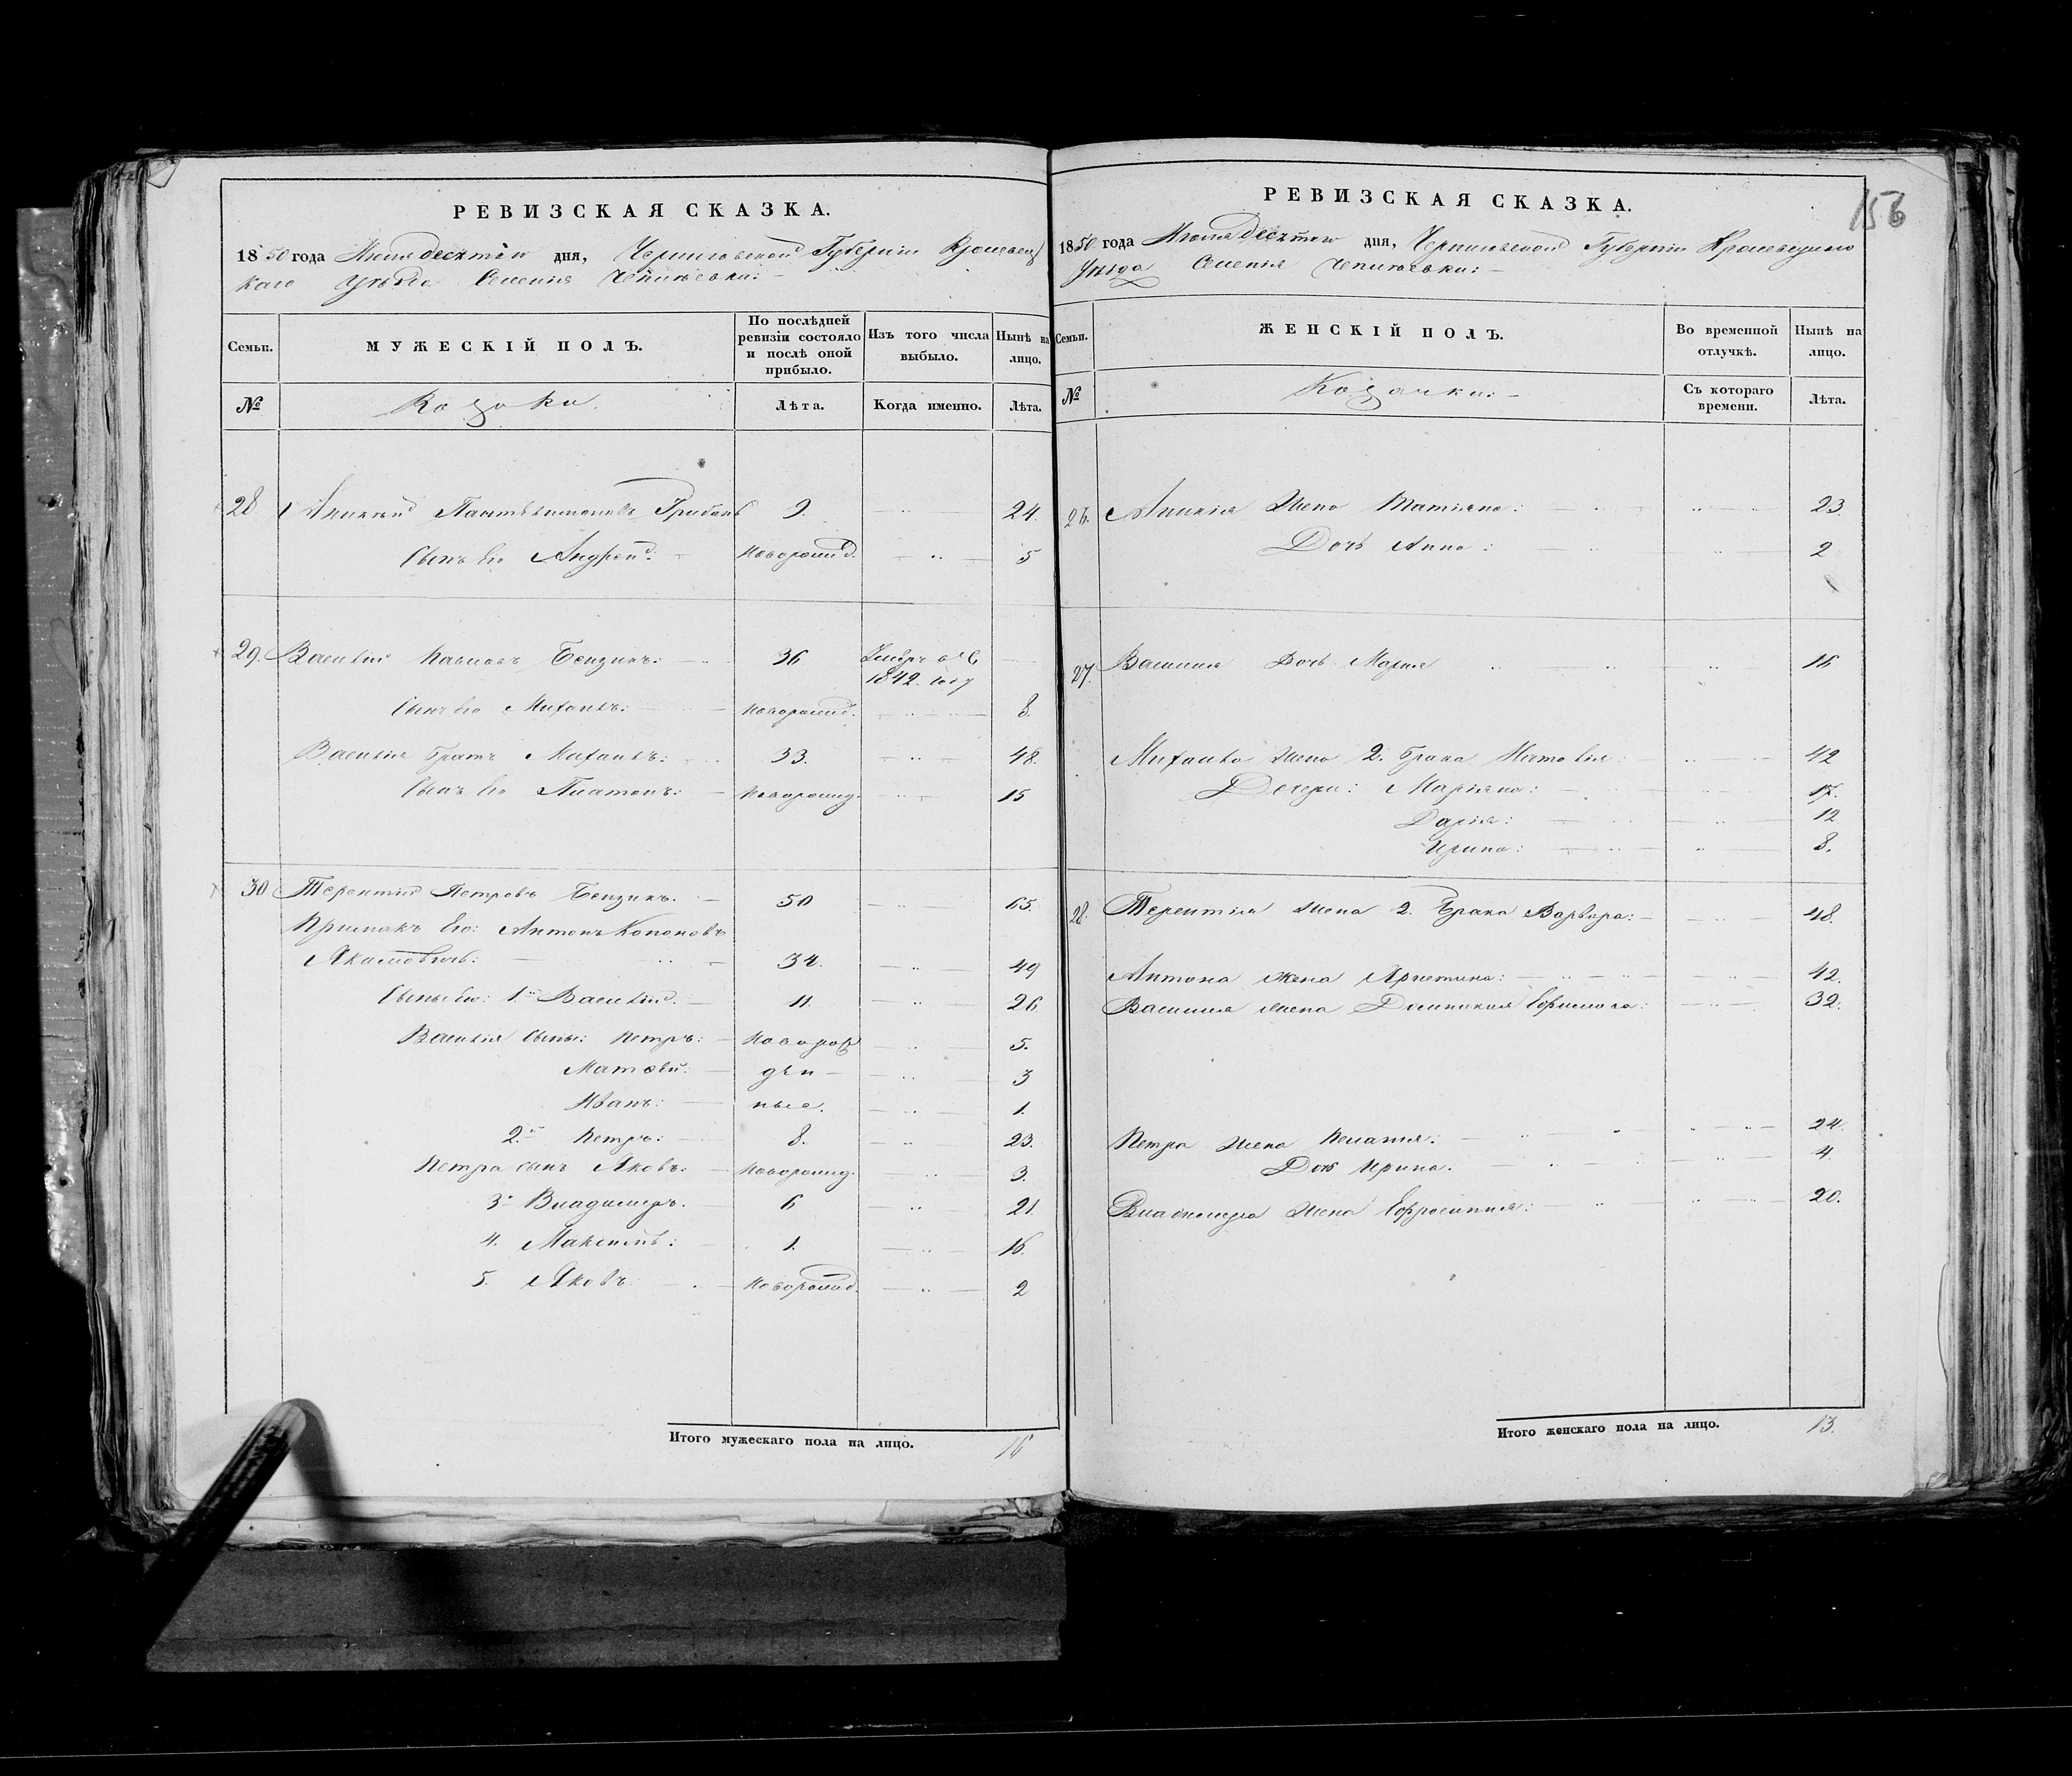 РЕВИЗСКАЯ СКАЗКА.
1850 года Июня десятаго дня, Черниговской Губерніи Кролевец
каго уѣзда Селенія Чепліевки:
Семьи.
МУЖЕСКІЙ ПОЛЪ.
По послѣдней ревизіи состояло и послѣ оной прибыло.
Изъ того числа выбыло.
Нынѣ на лицо.
№
Козаки.
Лѣта.
Когда именно.
Лѣта.
28 9. 24.
Сынъ его Андрей: новорожд. 5
29. Василій Павловъ Бензикъ: 36 1842 году
Сынъ его Михаилъ: новорожд. 8.
Василія братъ Михаилъ: 33. 48.
Сынъ его Платонъ: новорожд. 15
30 Терентій Петровъ Бензикъ. 50 65.
Примакъ Его: Антонъ Кононовъ
34. 49
Сыны его: 1й Василій. 11. 26.
Василія сыны: Петръ: новорож 5.
Матвѣй: ден 3
Иванъ: ные. 1.
2й Петръ: 8. 23.
Петра сынъ Яковъ: новорожд. 3.
3й Владимиръ. 6 21.
4. Максимъ: 1. 16.
5. Яковъ новорожд. 2
Итого мужескаго пола на лицо. 16
156
РЕВИЗСКАЯ СКАЗКА.
1850 года Июня десятаго дня, Черниговской Губерніи Кролевецкаго
Уѣзда Селенія Чепліевки:
Семьи.
ЖЕНСКІЙ ПОЛЪ.
Во временной отлучкѣ.
Нынѣ на лицо.
№
Козачки:
Съ котораго времени.
Лѣта.
26. жена Татіяна: 23.
Дочь Анна: 2
27. Василія Дочь Марія 16
Михаила жена 2. брака 42
Дочери: Маріяна: 17.
Дарія: 12
Ирина: 8.
28. Терентія жена 2. брака Варвара: 48.
Антона жена Христина: 42.
Василія жена 32.
Петра жена Пелагія: 24.
Дочь Ирина: 4.
Владимира жена Ефросинія: 20.
Итого женскаго пола на лицо. 13.